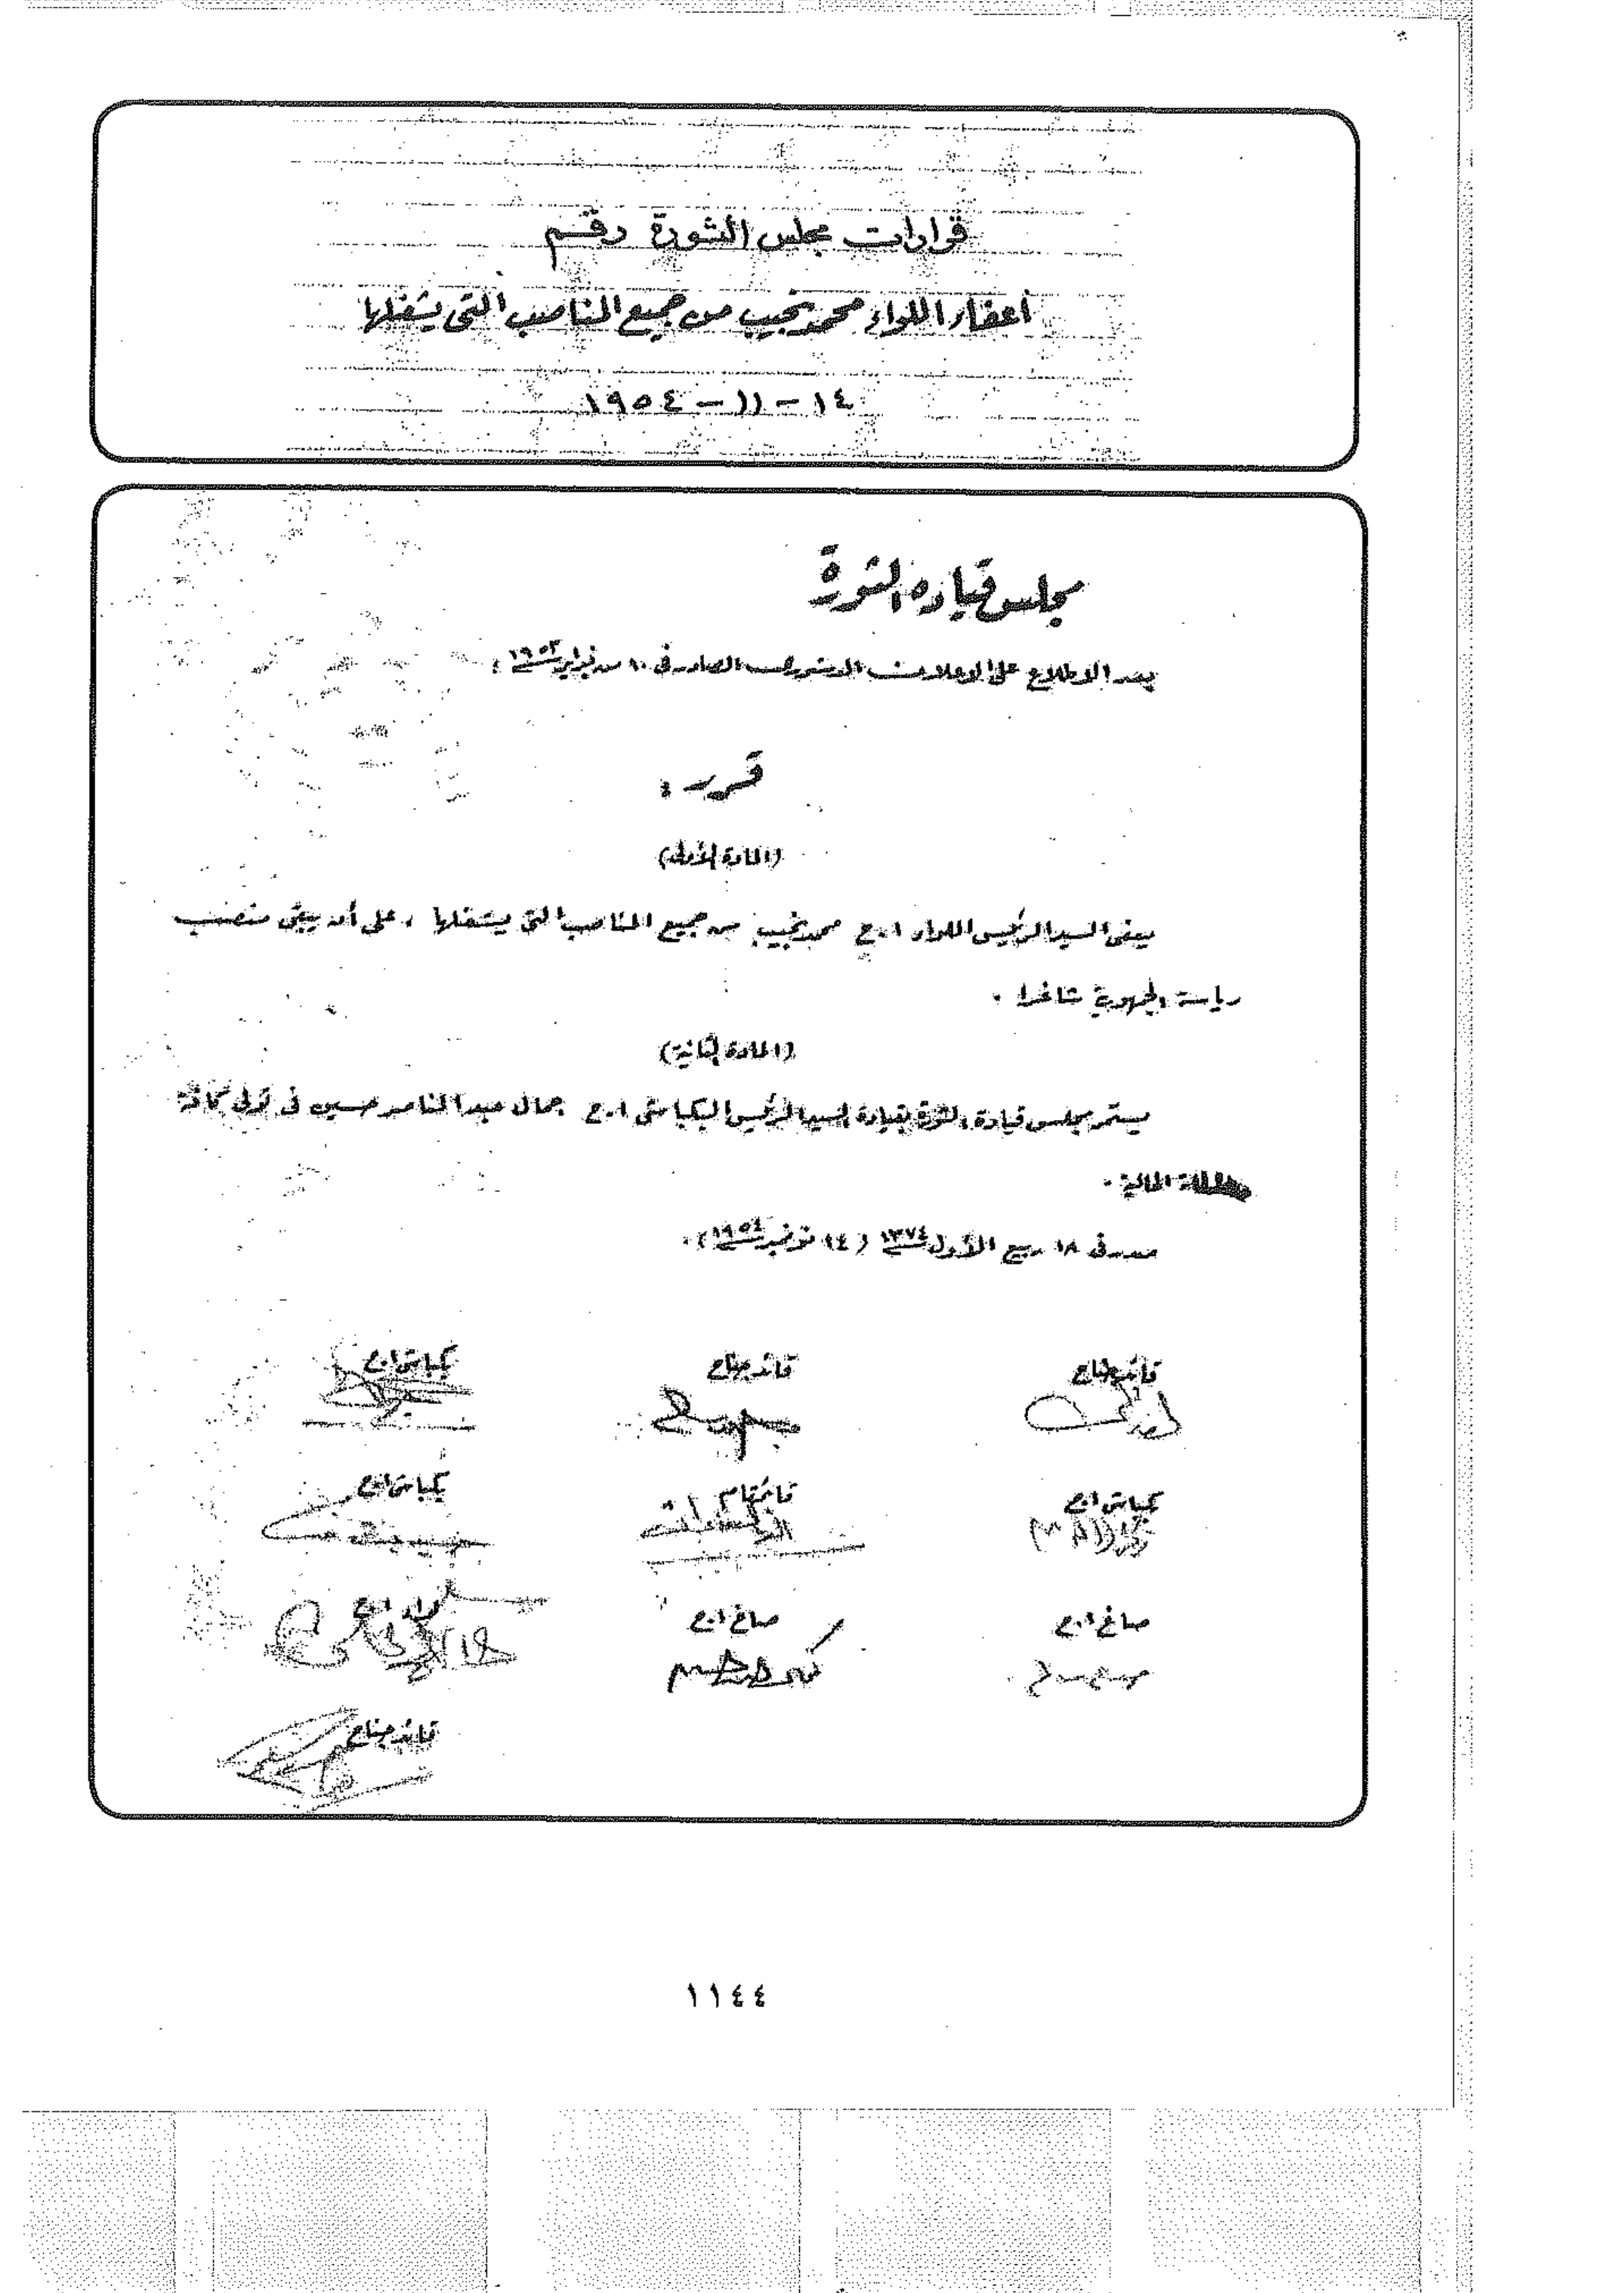 قرارات مجلس الثورة رقم
أعفاء اللواء محمد نجيب من جميع المناصب التى يشغلها
١٤ - ١١ - ١٩٥٤
مجلس قيادة الثورة
بعد الاطلاع على الاعلان الدستورى الصادر فى ١٠ من فبراير سنة ١٩٥٣ ؛
قرر :
(المادة الأولى)
يعفى السيد الرئيس اللواء ا.ح محمد نجيب من جميع المناصب التى يشغلها ، على أن يبقى منصب
رياسة الجمهورية شاغرا .
(المادة الثانية)
يستمر مجلس قيادة الثورة بقيادة السيد الرئيس البكباشى ا.ح جمال عبد الناصر حسين فى تولى كافة
الحالية .
صدر فى ١٨ ربيع الأول سنة ١٣٧٤ (١٤ نوفمبر سنة ١٩٥٤) .
قائد جناح قائد جناح بكباشى ا.ح
بكباشى ا.ح قائمقام بكباشى ا.ح
أنور السادات
صاغ ا.ح صاغ ا.ح لواء ا.ح
قائد جناح
١١٤٤